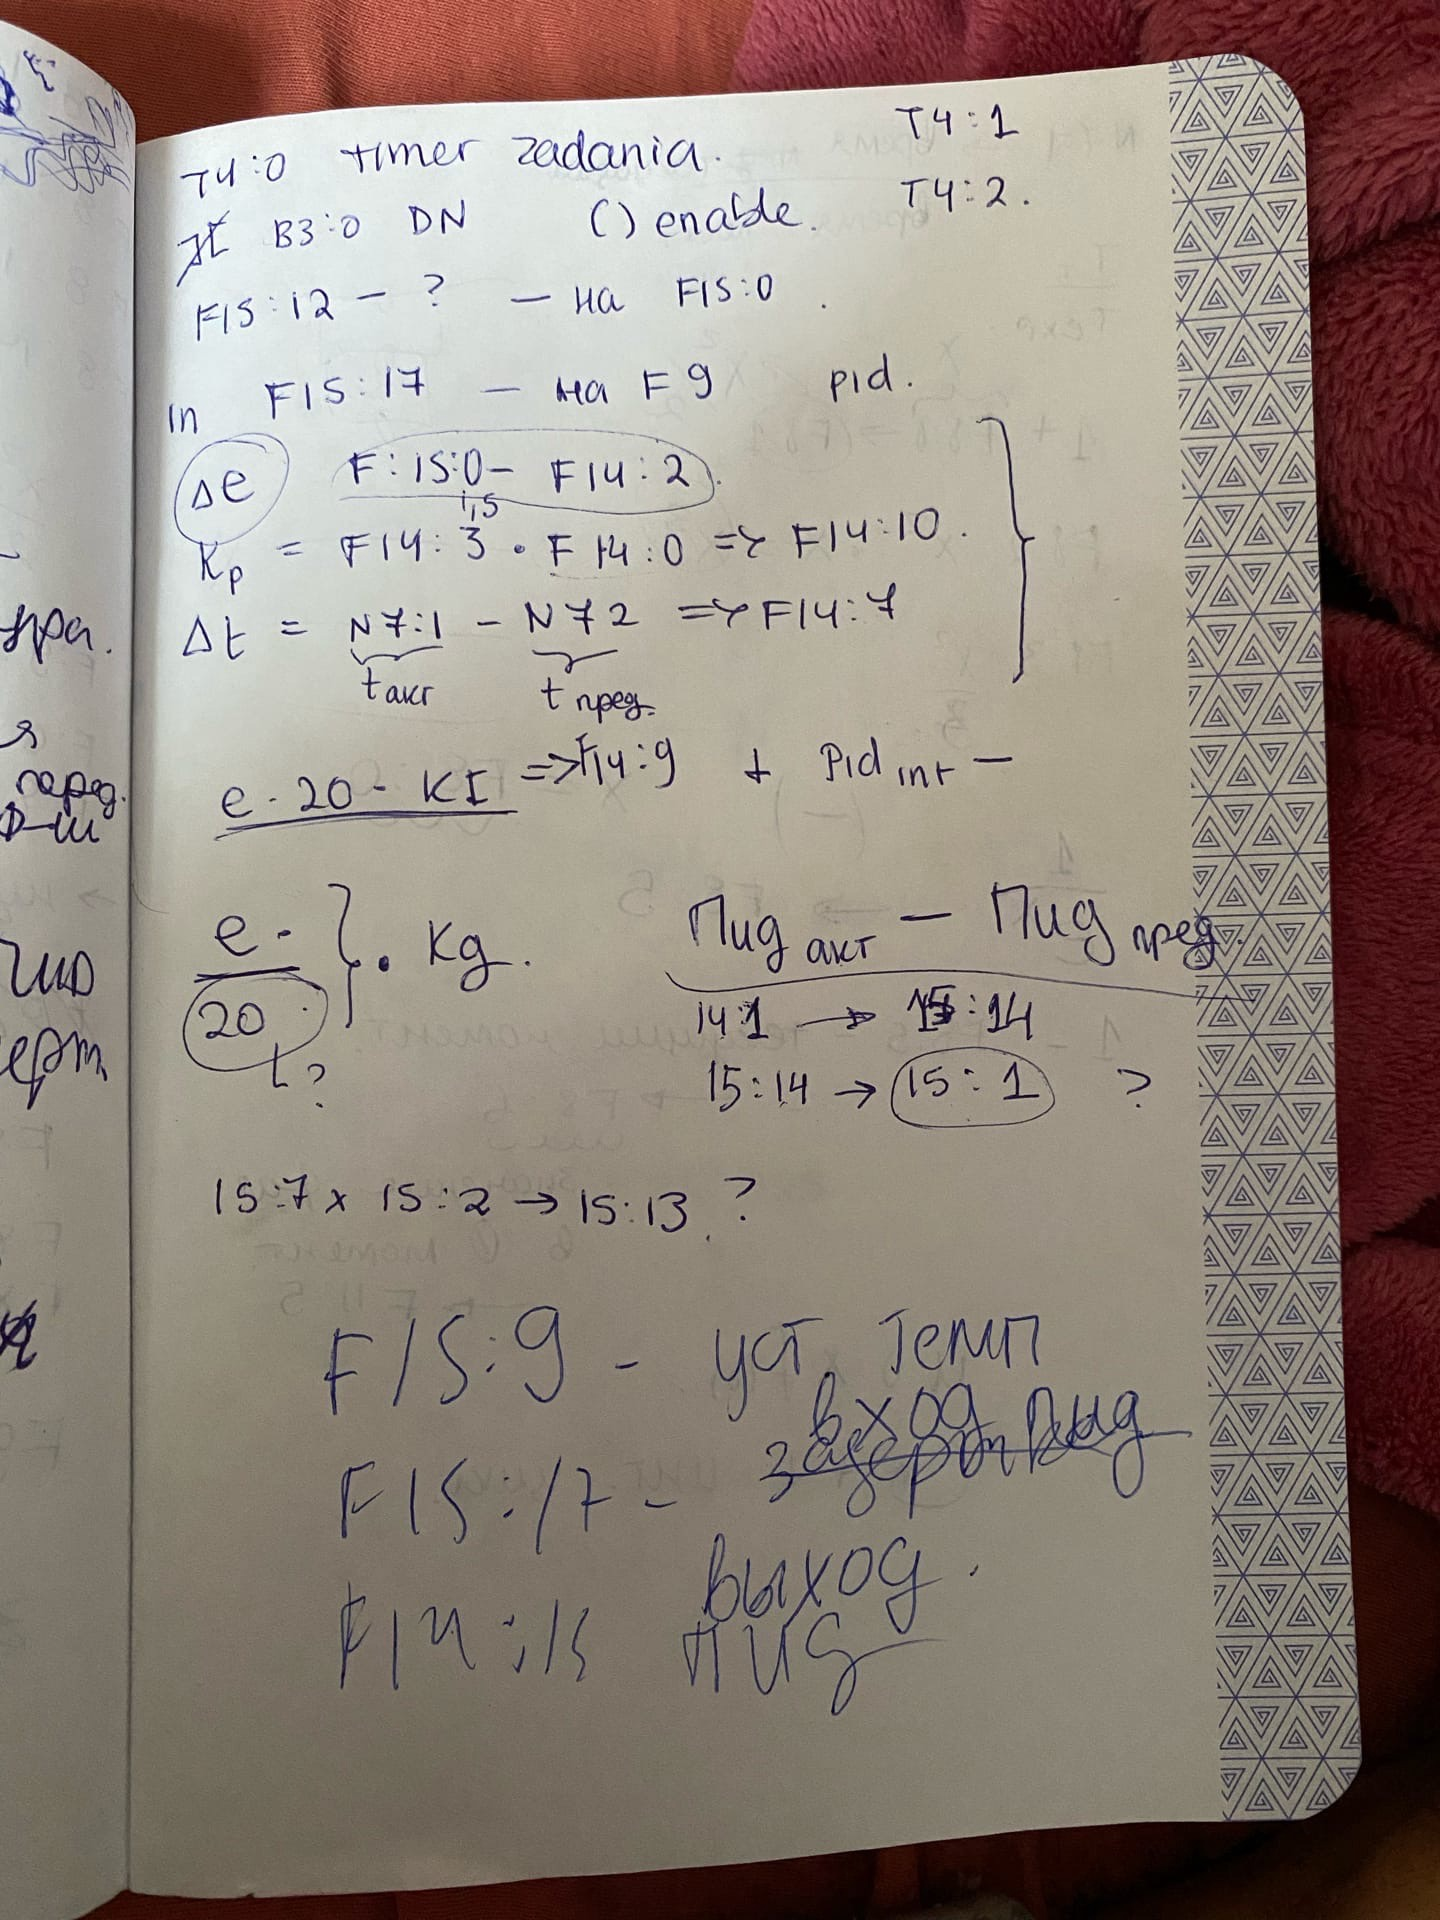 T4:0 timer zadania.
T4:1
B3:0 DN () enable.
T4:2.
F15:12 – ? – на F15:0.
In F15:17 – на F9 pid.
Δe F:15:0 – F14:2
1,5
Kp = F14:3 · F14:0 => F14:10.
Δt = N7:1 – N72 => F14:7
t акт t пред.
e · 20 · KI => F14:9 + Pid int –
e· } · Kg.
20
t?
Пид акт – Пид пред.
14:1 → 15:14
15:14 → 15:1 ?
15:7 x 15:2 → 15:13 ?
F15:9 – уст. темп
вход пид
F15:17 –
выход.
F14:15 пид
ура.
я
перед.